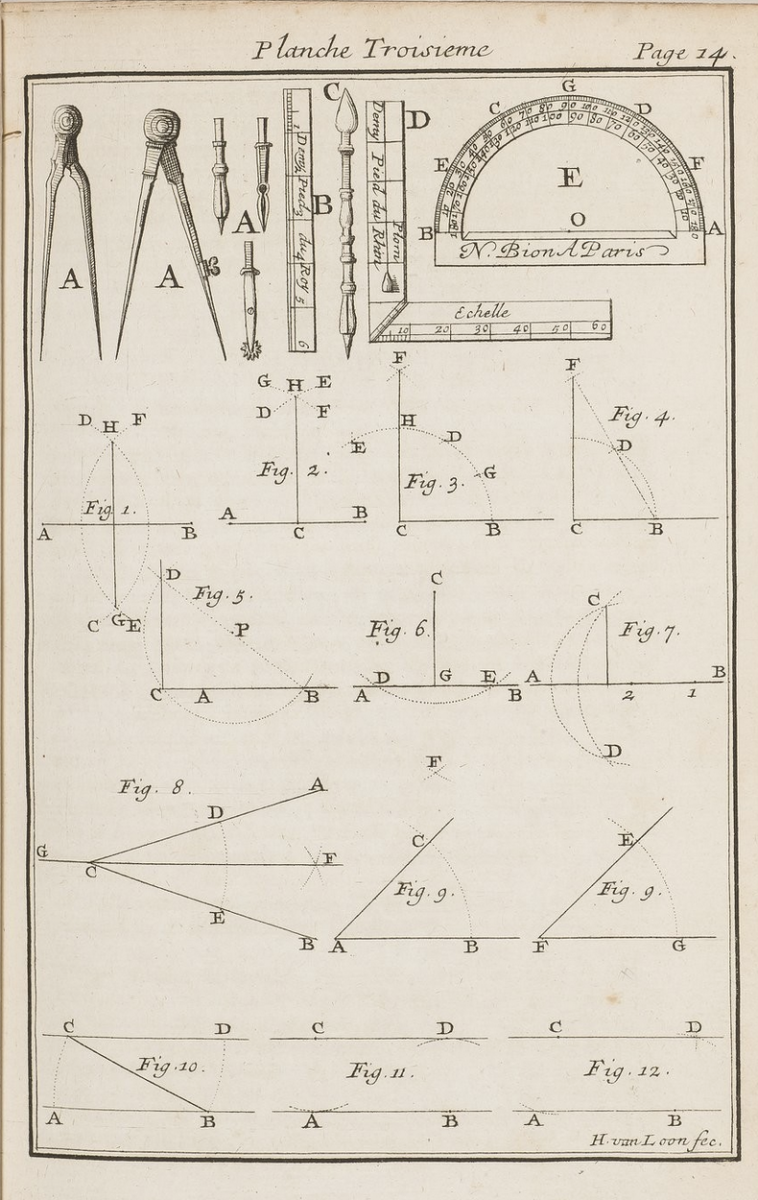 Planche Troisieme Page 14.
A A A
Demy Pied du Roy
5
6
B
C
Demy Pied du Rhin
Plom
D
Echelle
10 20 30 40 50 60
G
C D
E F
E
B O A
N. Bion A Paris
D H F
Fig. 1.
A B
C G E
G H E
D F
Fig. 2.
A B
C
F
E H D
Fig. 3. G
C B
F
Fig. 4.
D
C B
D
Fig. 5.
P
C A B
C
Fig. 6.
D G E
A B
F
C
Fig. 7.
A B
2 1
D
Fig. 8.
A
D
G C F
E
B
C
Fig. 9.
A B
E
Fig. 9.
F G
C D
Fig. 10.
A B
C D
Fig. 11.
A B
C D
Fig. 12.
A B
H. van Loon fec.